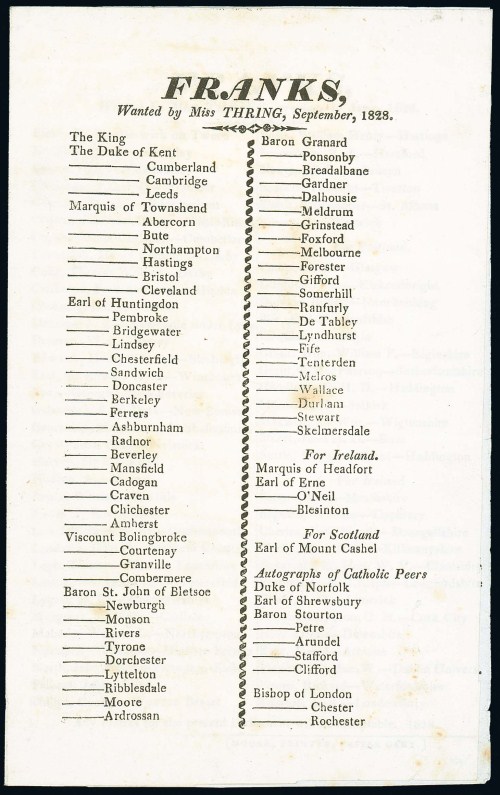 FRANKS,
Wanted by Miss THRING, September, 1828.
The King
The Duke of Kent
——— Cumberland
——— Cambridge
——— Leeds
Marquis of Townshend
——— Abercorn
——— Bute
——— Northampton
——— Hastings
——— Bristol
——— Cleveland
Earl of Huntingdon
——— Pembroke
——— Bridgewater
——— Lindsey
——— Chesterfield
——— Sandwich
——— Doncaster
——— Berkeley
——— Ferrers
——— Ashburnham
——— Radnor
——— Beverley
——— Mansfield
——— Cadogan
——— Craven
——— Chichester
——— Amherst
Viscount Bolingbroke
——— Courtenay
——— Granville
——— Combermere
Baron St. John of Bletsoe
——— Newburgh
——— Monson
——— Rivers
——— Tyrone
——— Dorchester
——— Lyttelton
——— Ribblesdale
——— Moore
——— Ardrossan
Baron Granard
——— Ponsonby
——— Breadalbane
——— Gardner
——— Dalhousie
——— Meldrum
——— Grinstead
——— Foxford
——— Melbourne
——— Forester
——— Gifford
——— Somerhill
——— Ranfurly
——— De Tabley
——— Lyndhurst
——— Fife
——— Tenterden
——— Melros
——— Wallace
——— Durham
——— Stewart
——— Skelmersdale
For Ireland.
Marquis of Headfort
Earl of Erne
——— O'Neil
——— Blesinton
For Scotland
Earl of Mount Cashel
Autographs of Catholic Peers
Duke of Norfolk
Earl of Shrewsbury
Baron Stourton
——— Petre
——— Arundel
——— Stafford
——— Clifford
Bishop of London
——— Chester
——— Rochester